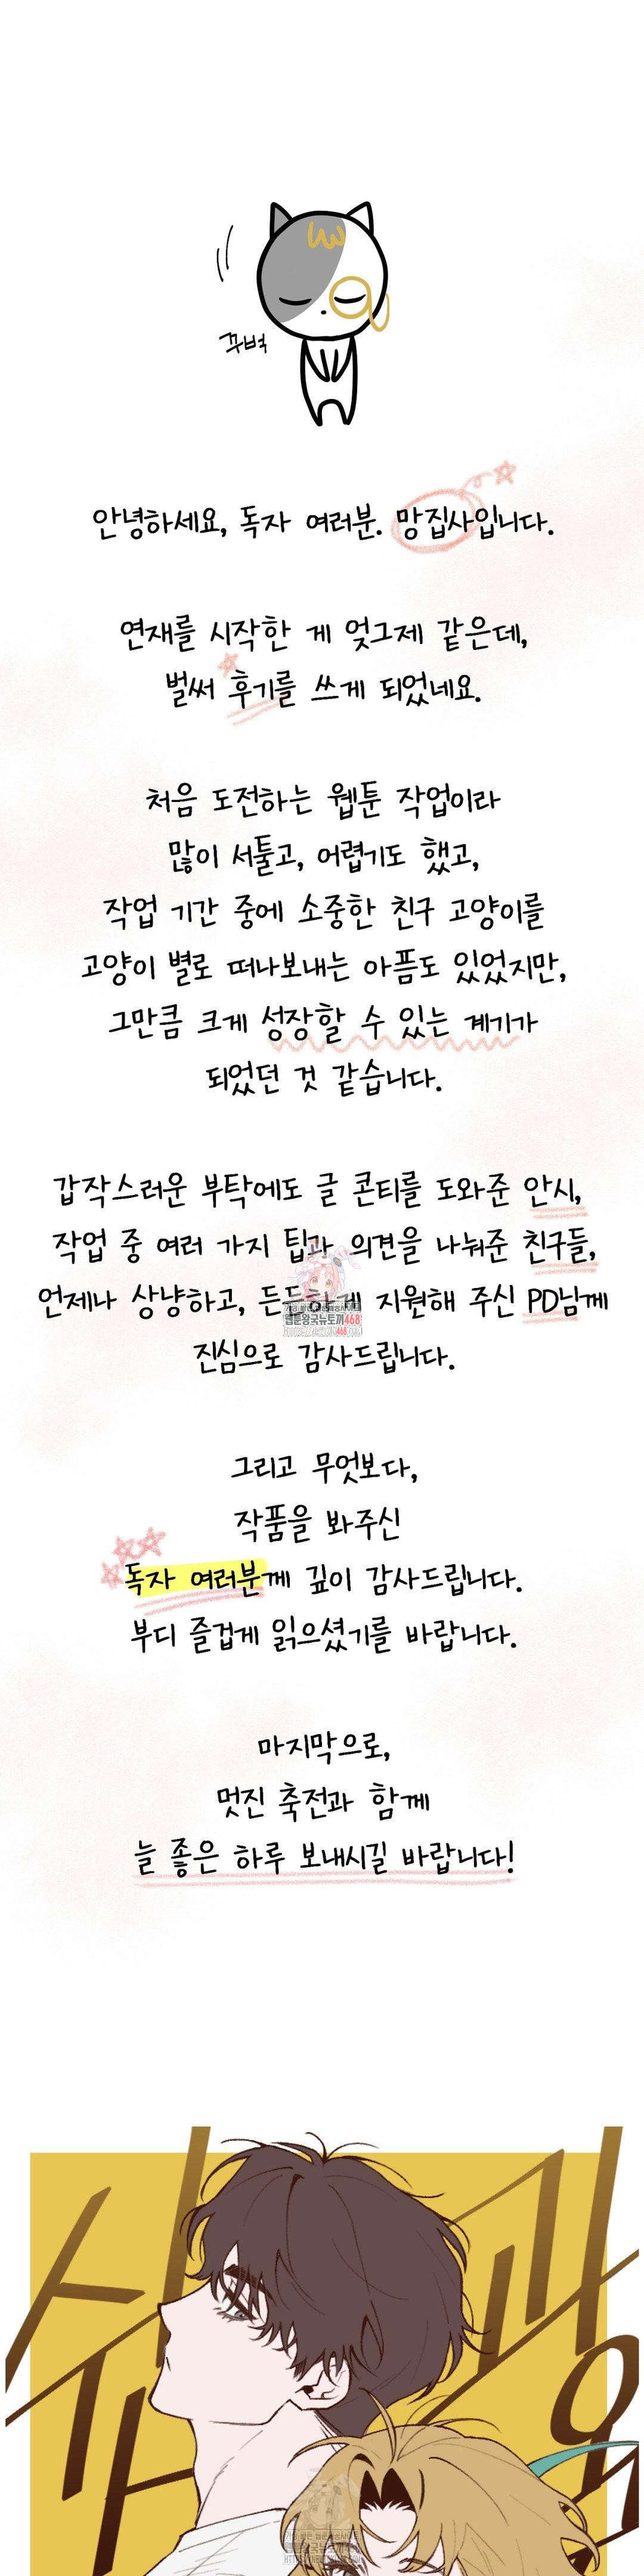 꾸벅
안녕하세요, 독자 여러분. 망집사입니다.
연재를 시작한 게 엊그제 같은데,
벌써 후기를 쓰게 되었네요.
처음 도전하는 웹툰 작업이라
많이 서툴고, 어렵기도 했고,
작업 기간 중에 소중한 친구 고양이를
고양이 별로 떠나보내는 아픔도 있었지만,
그만큼 크게 성장할 수 있는 계기가
되었던 것 같습니다.
갑작스러운 부탁에도 글 콘티를 도와준 안시,
작업 중 여러 가지 팁과 의견을 나눠준 친구들,
언제나 상냥하고, 든든하게 지원해 주신 PD님께
웹툰왕국뉴토끼468
진심으로 감사드립니다.
그리고 무엇보다,
작품을 봐주신
독자 여러분께 깊이 감사드립니다.
부디 즐겁게 읽으셨기를 바랍니다.
마지막으로,
멋진 축전과 함께
늘 좋은 하루 보내시길 바랍니다!